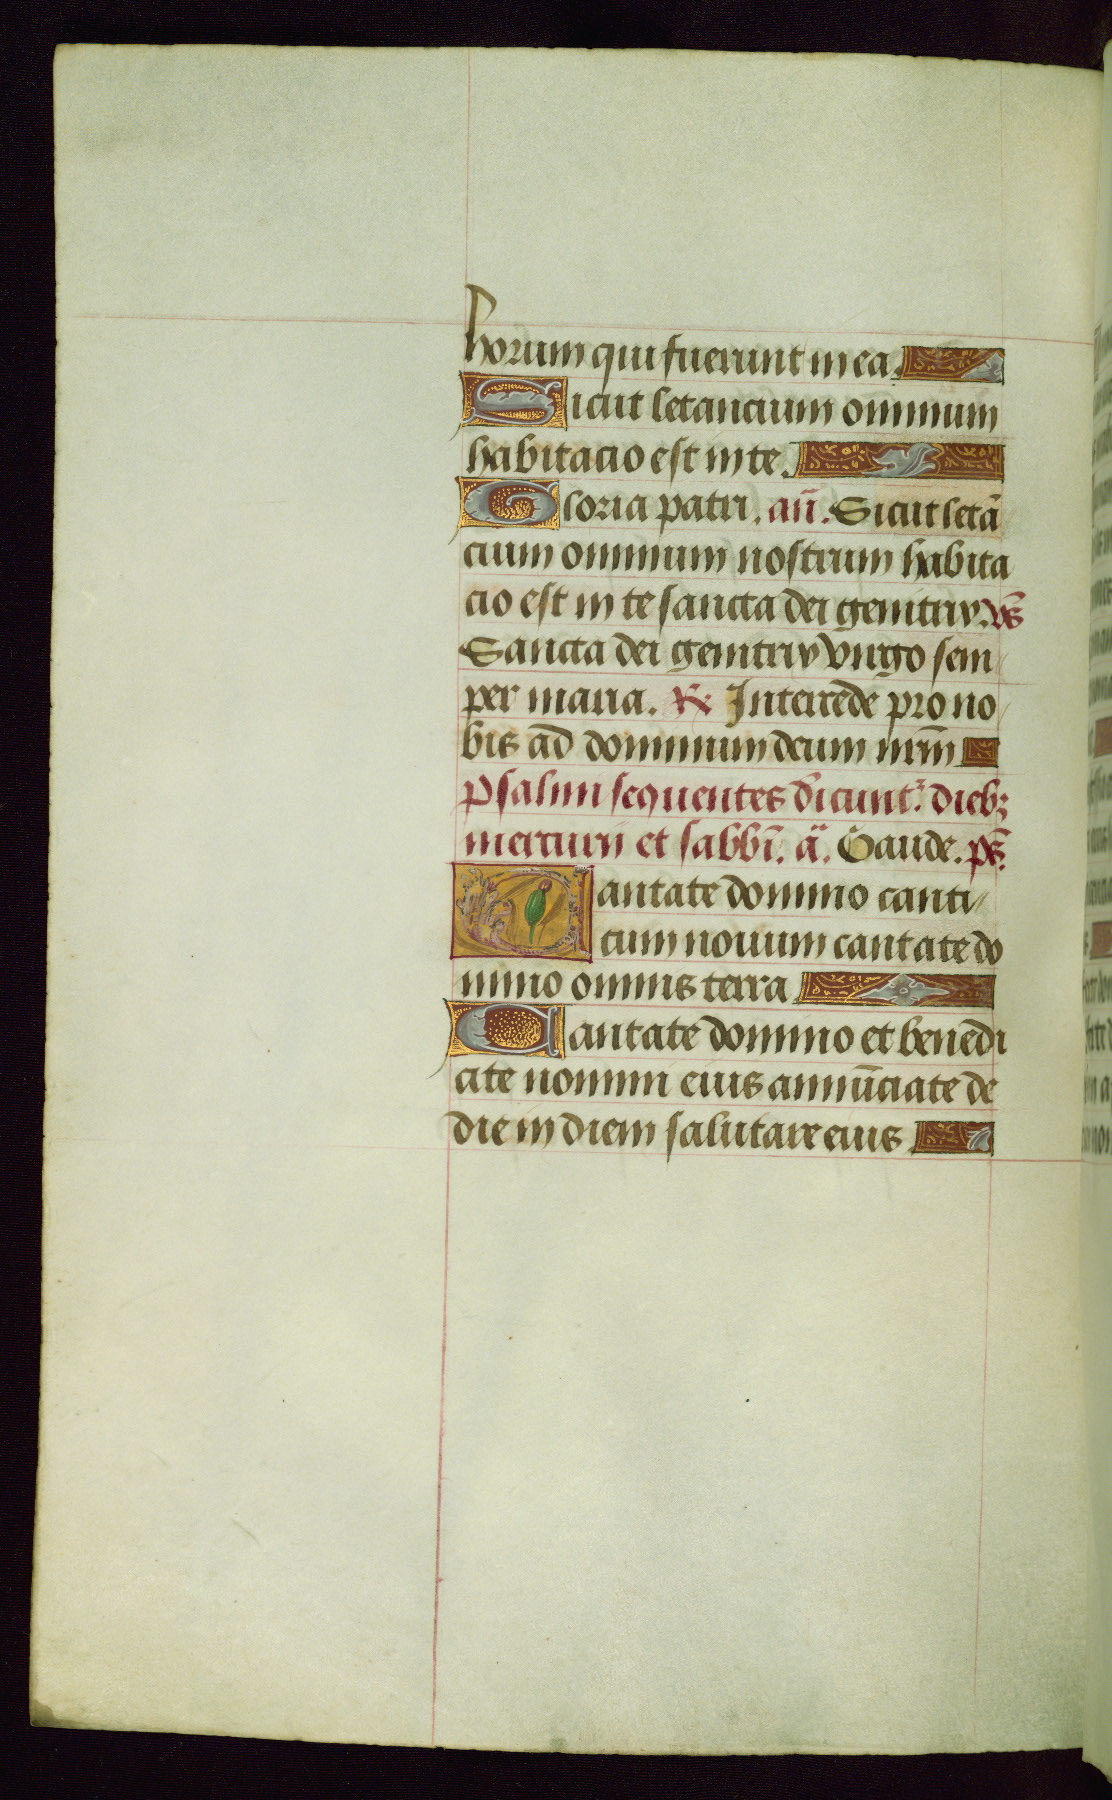 horum qui fuerunt in ea.
Sicut letancium omnium
habitacio est in te.
Gloria patri. an̄. Sicut letā
cium omnium nostrum habita
cio est in te sancta dei genitrix. v̄s
Sancta dei genitrix virgo sem
per maria. ℟ Intercede pro no
bis ad dominum deum nr̄m
Psalmi sequentes dicunt᷑ dieb⁊
mercurii et sabbī. ā. Gaude. p̄s.
Cantate domino canti
cum novum cantate do
mino omnis terra
Cantate domino et benedi
cite nomini eius annūciate de
die in diem salutare eius.